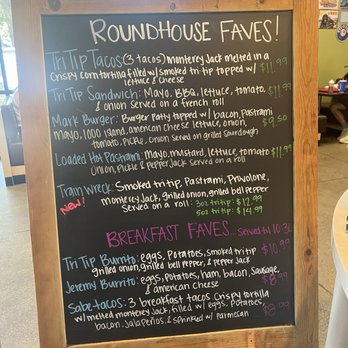 ROUNDHOUSE FAVES!
Tri Tip Tacos (3 tacos) monterey Jack melted in a
crispy corn tortina filled w/ smoked tri tip topped w/
lettuce & cheese $11.99
Tri Tip Sandwich: Mayo, BBQ, lettuce, tomato,
& onion Served on a french roll $11.99
Mark Burger: Burger Patty topped w/ bacon, pastrami
Mayo, 1000 island, american cheese lettuce, onion,
tomato, pickle, onion Served on grilled Sourdough $9.50
Loaded Hot Pastrami: Mayo, mustard, lettuce, tomato
onion, pickle & pepper Jack Served on a roll $11.99
Train Wreck: Smoked tri tip, Pastrami, Provolone,
New! Monterey Jack, grilled onion, grilled bell pepper
Served on a roll: 3oz tri tip: $12.99
5oz tri tip: $14.99
BREAKFAST FAVES... Served til 10:30
Tri Tip Burrito: eggs, Potatoes, smoked tri tip $10.99
grilled onion, grilled bell pepper, & pepper Jack
Jeremy Burrito: eggs, potatoes, ham, bacon, Sausage,
& american cheese $8.99
Sabe-tacos: 3 breakfast tacos Crispy tortilla
w/ melted monterey Jack, filled w/ eggs, Potatoes,
bacon, Jalapeños, & sprinkled w/ parmecan $8.99